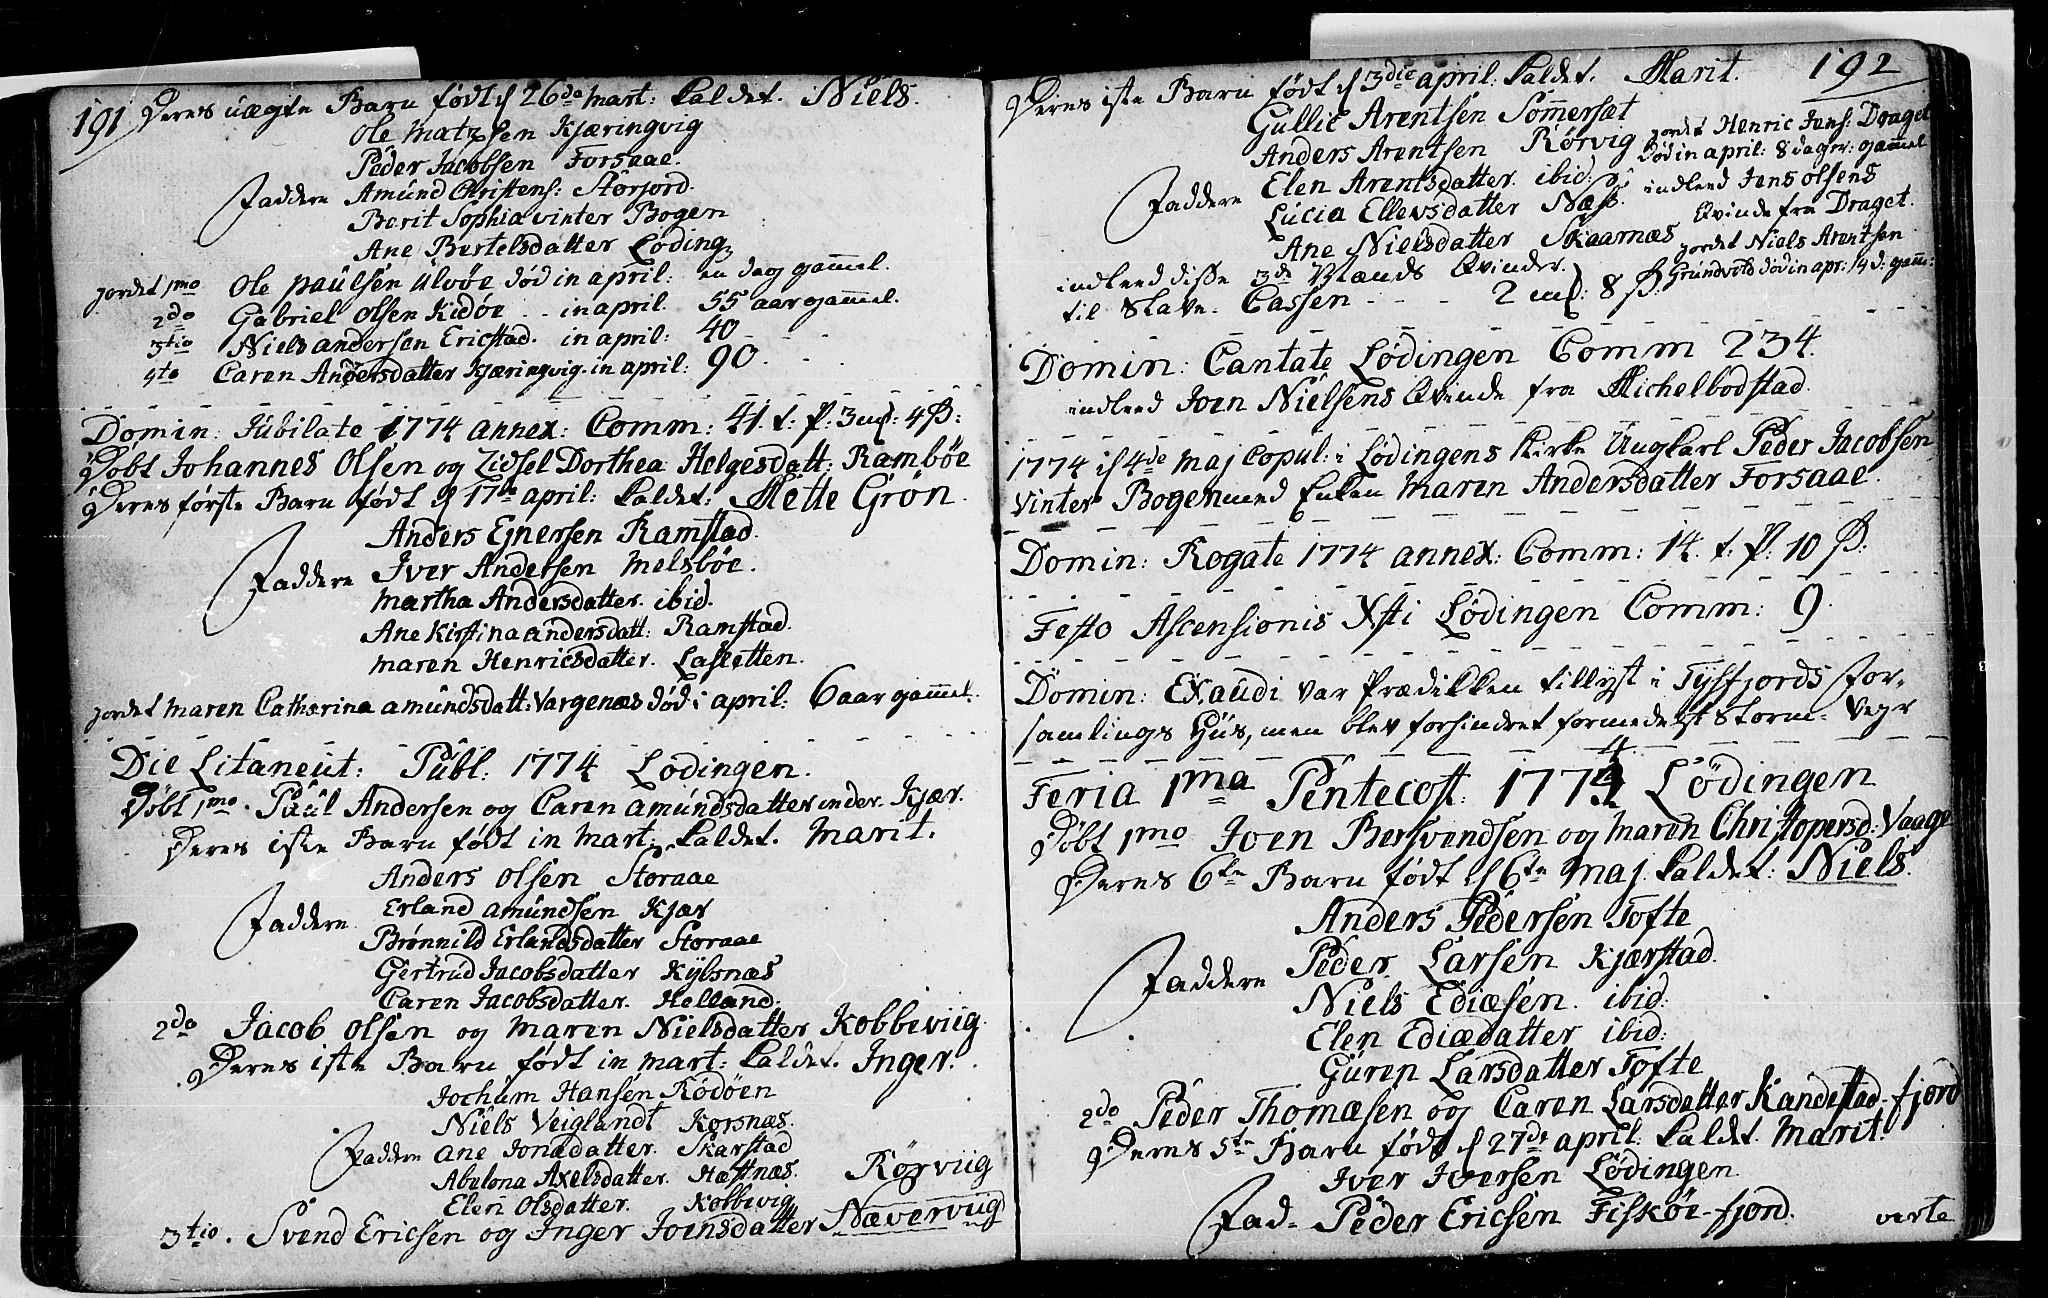 191
Deres uægte Barn født d 26de Mart: kaldet. Niels.
Ole Matzsen Kjæringvig
Peder Jacobsen Forsaae.
Faddere Amund Christens: Storjord.
Berit Sophia Vinter Bogen
Ane Bertelsdatter Løding
jordet 1mo Ole Paulsen Ulvøe død in april: en dag gammel.
2do Gabriel Olsen Kidøe - - in april. 55 aar gammel.
3tio Niels Andersen Ericstad. in april: 40 - - -
4to Caren Andersdatter Kjæringvig. in april: 90 - - -
Domin: Jubilate 1774 annex: Comm: 41. t: P: 3 mk: 4 ß:
Døbt Johannes Olsen og Zidsel Dorthea Helgesdatt: Rambøe
Deres første Barn født d 17de april: kaldet: Mette Grøn.
Anders Ejnersen Ramstad.
Faddere Iver Andersen Melsbøe.
Martha Andersdatter. ibid.
Ane Kirstina Andersdatt: Ramstad.
Maren Henricsdatter. Lasletten.
jordet Maren Catharina Amundsdatt: Vargenæs død i april: 6 aar gammel.
Die Litaneut: Publ: 1774 Lødingen.
Døbt 1mo. Paul Andersen og Caren Amundsdatter inder-Kjær.
Deres iste Barn født in Mart: kaldet. Marit.
Anders Olsen Storaae
Faddere Erland Amundsen Kjær
Brønnild Erlandsdatter Storaae
Gertrud Jacobsdatter Kylsnæs
Caren Jacobsdatter. Helland.
2do Jacob Olsen og Maren Nielsdatter Kobbeviig.
Deres iste Barn født in Mart: kaldet. Inger.
Jochum Hansen Rødøen
Niels Veiglandt Korsnæs.
Faddere Ane Jonadatter. Skarstad
Abelona Axelsdatter. Hæstnæs.
Elen Olsdatter. Kobbevig
Rørviig
3tio. Svend Ericsen og Inger Joensdatter Næverviig
192
Deres iste Barn født d 3die april: kaldet. Marit.
Gullic Arentsen Sommersæt
Anders Arentsen Rørvig
Faddere Elen Arentsdatter. ibid:
Lucia Ellevsdatter Næss.
Ane Nielsdatter Skaarnæs
jordet Henric Jens: Draget
død in april: 8 dager: gammel
indleed Jens Olsens
Qvinde fra Draget.
jordet Niels Arentsen
Grundvold død in apr: 14 d: gamm:
indleed disse 3de Mænds Qvinder.
til Slave-Cassen - - - 2 mk: 8 ß:
Domin: Cantate Lødingen Comm 234.
indleed Joen Nielsens Qvinde fra Michelbodstad.
1774 d 4de Maj Copul: i Lødingens Kirke Ungkarl Peder Jacobsen
Vinter Bogen med Enken Maren Andersdatter Forsaae.
Domin: Rogate 1774 annex: Comm: 14. t: P: 10 ß:
Festo Ascensionis Xsti Lødingen Comm: 9.
Domin: Exaudi var Prædikken tillyst i Tysfjords For-
samlings Huus, men blev forhindret formedelst Storm-Vejr
Feria 1ma Pentecost: 1774 Lødingen
Døbt 1mo Joen Bersvendsen og Maren Christopersd: Vaage
Deres 6te Barn født d 6te Maj kaldet: Niels.
Anders Pedersen Tofte
Faddere Peder Larsen Kjærstad.
Niels Ediæsen. ibid:
Elen Ediædatter ibid:
Guren Larsdatter Tofte
2do Peder Thomæsen og Caren Larsdatter Kandestad-fjord
Deres 5te Barn født d 27de april: kaldet. Marit.
Iver Iversen Lødingen
Fad- Peder Ericsen Fiskøe-fjord.
verte